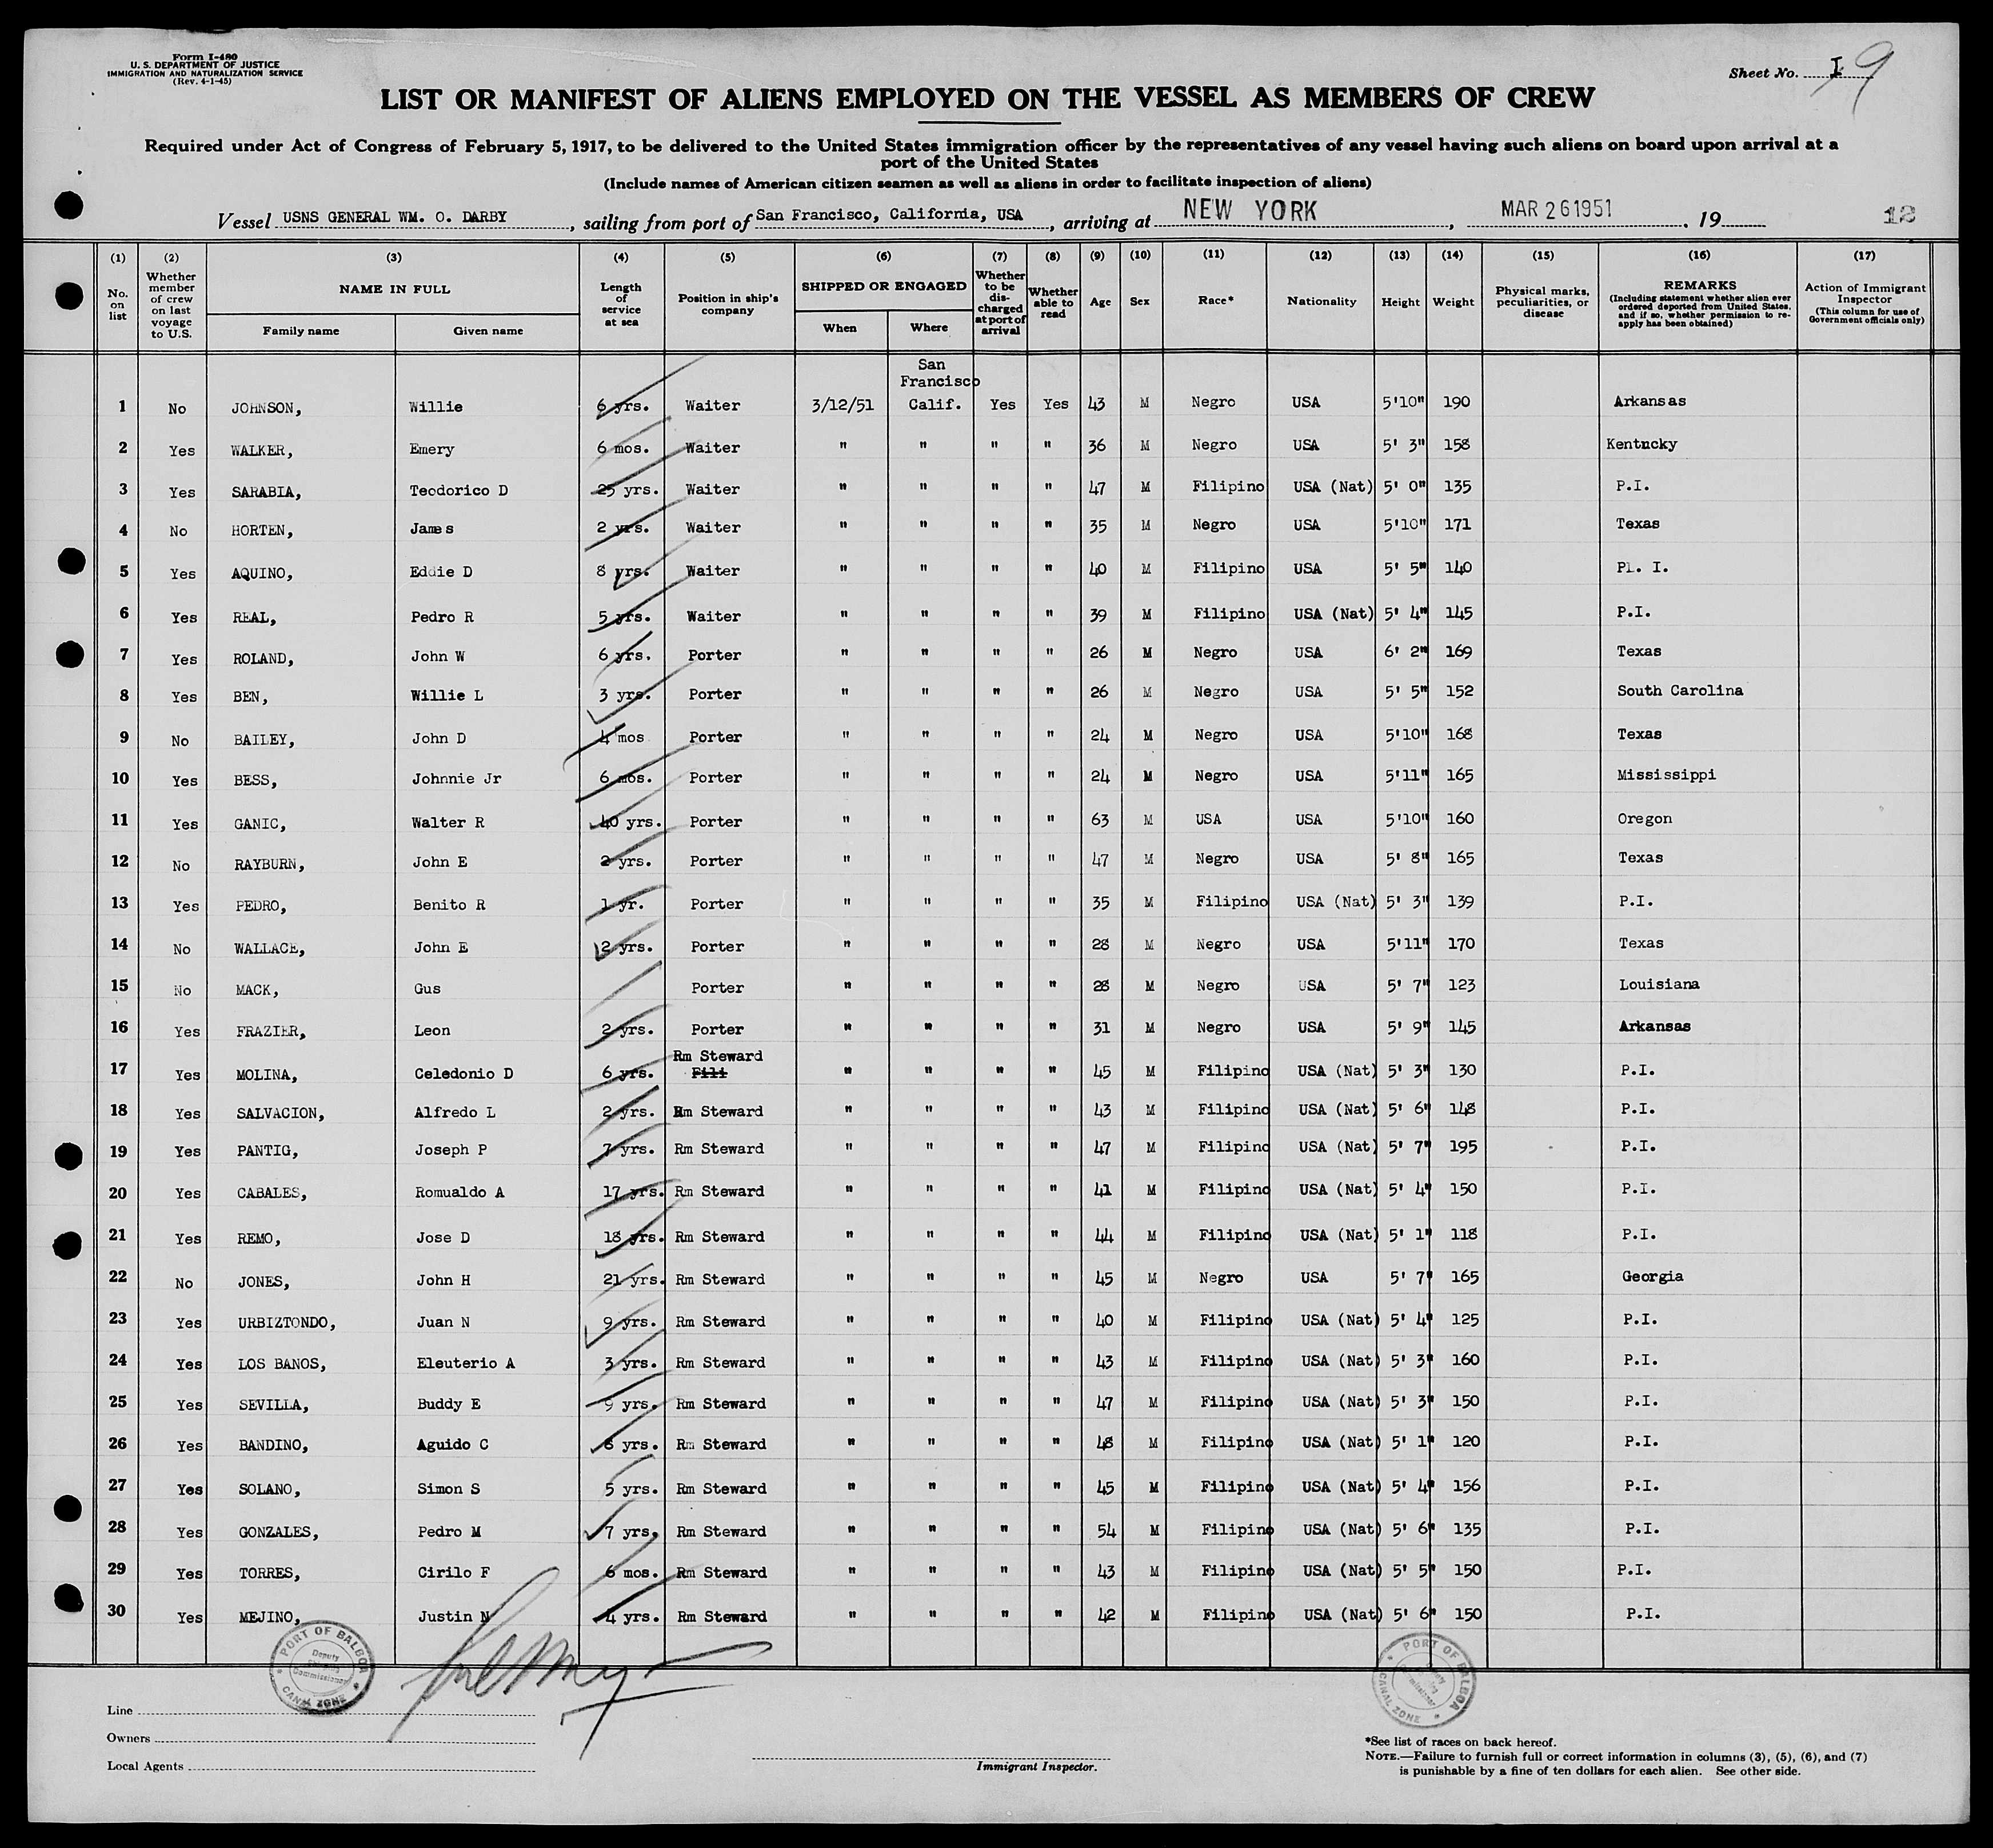 Form I-480
U. S. DEPARTMENT OF JUSTICE
IMMIGRATION AND NATURALIZATION SERVICE
(Rev. 4-1-45)
Sheet No. I 9
LIST OR MANIFEST OF ALIENS EMPLOYED ON THE VESSEL AS MEMBERS OF CREW
Required under Act of Congress of February 5, 1917, to be delivered to the United States immigration officer by the representatives of any vessel having such aliens on board upon arrival at a
port of the United States
(Include names of American citizen seamen as well as aliens in order to facilitate inspection of aliens)
Vessel USNS GENERAL WM. O. DARBY, sailing from port of San Francisco, California, USA, arriving at NEW YORK, MAR 26 1951, 19 12
(1) No. on list
(2) Whether member of crew on last voyage to U.S.
(3) NAME IN FULL Family name Given name
(4) Length of service at sea
(5) Position in ship's company
(6) SHIPPED OR ENGAGED When Where
(7) Whether to be discharged at port of arrival
(8) Whether able to read
(9) Age
(10) Sex
(11) Race*
(12) Nationality
(13) Height
(14) Weight
(15) Physical marks, peculiarities, or disease
(16) REMARKS (Including statement whether alien ever ordered deported from United States, and if so, whether permission to reapply has been obtained)
(17) Action of Immigrant Inspector (This column for use of Government officials only)
San
Francisco
1 No JOHNSON, Willie 6 yrs. Waiter 3/12/51 Calif. Yes Yes 43 M Negro USA 5'10" 190 Arkansas
2 Yes WALKER, Emery 6 mos. Waiter " " " " 36 M Negro USA 5' 3" 158 Kentucky
3 Yes SARABIA, Teodorico D 25 yrs. Waiter " " " " 47 M Filipino USA (Nat) 5' 0" 135 P.I.
4 No HORTEN, James 2 yrs. Waiter " " " " 35 M Negro USA 5'10" 171 Texas
5 Yes AQUINO, Eddie D 8 yrs. Waiter " " " " 40 M Filipino USA 5' 5" 140 Pl. I.
6 Yes REAL, Pedro R 5 yrs. Waiter " " " " 39 M Filipino USA (Nat) 5' 4" 145 P.I.
7 Yes ROLAND, John W 6 yrs. Porter " " " " 26 M Negro USA 6' 2" 169 Texas
8 Yes BEN, Willie L 3 yrs. Porter " " " " 26 M Negro USA 5' 5" 152 South Carolina
9 No BAILEY, John D 4 mos Porter " " " " 24 M Negro USA 5'10" 168 Texas
10 Yes BESS, Johnnie Jr 6 mos. Porter " " " " 24 M Negro USA 5'11" 165 Mississippi
11 Yes GANIC, Walter R 40 yrs. Porter " " " " 63 M USA USA 5'10" 160 Oregon
12 No RAYBURN, John E 2 yrs. Porter " " " " 47 M Negro USA 5' 8" 165 Texas
13 Yes PEDRO, Benito R 1 yr. Porter " " " " 35 M Filipino USA (Nat) 5' 3" 139 P.I.
14 No WALLACE, John E 2 yrs. Porter " " " " 28 M Negro USA 5'11" 170 Texas
15 No MACK, Gus Porter " " " " 28 M Negro USA 5' 7" 123 Louisiana
16 Yes FRAZIER, Leon 2 yrs. Porter " " " " 31 M Negro USA 5' 9" 145 Arkansas
17 Yes MOLINA, Celedonio D 6 yrs. Rm Steward Fili " " " " 45 M Filipino USA (Nat) 5' 3" 130 P.I.
18 Yes SALVACION, Alfredo L 2 yrs. Rm Steward " " " " 43 M Filipino USA (Nat) 5' 6" 148 P.I.
19 Yes PANTIG, Joseph P 7 yrs. Rm Steward " " " " 47 M Filipino USA (Nat) 5' 7" 195 P.I.
20 Yes CABALES, Romualdo A 17 yrs. Rm Steward " " " " 41 M Filipino USA (Nat) 5' 4" 150 P.I.
21 Yes REMO, Jose D 18 yrs. Rm Steward " " " " 44 M Filipino USA (Nat) 5' 1" 118 P.I.
22 No JONES, John H 21 yrs. Rm Steward " " " " 45 M Negro USA 5' 7" 165 Georgia
23 Yes URBIZTONDO, Juan N 9 yrs. Rm Steward " " " " 40 M Filipino USA (Nat) 5' 4" 125 P.I.
24 Yes LOS BANOS, Eleuterio A 3 yrs. Rm Steward " " " " 43 M Filipino USA (Nat) 5' 3" 160 P.I.
25 Yes SEVILLA, Buddy E 9 yrs. Rm Steward " " " " 47 M Filipino USA (Nat) 5' 3" 150 P.I.
26 Yes BANDINO, Aguido C yrs. Rm Steward " " " " 48 M Filipino USA (Nat) 5' 1" 120 P.I.
27 Yes SOLANO, Simon S 5 yrs. Rm Steward " " " " 45 M Filipino USA (Nat) 5' 4" 156 P.I.
28 Yes GONZALES, Pedro M 7 yrs. Rm Steward " " " " 54 M Filipino USA (Nat) 5' 6" 135 P.I.
29 Yes TORRES, Cirilo F 6 mos. Rm Steward " " " " 43 M Filipino USA (Nat) 5' 5" 150 P.I.
30 Yes MEJINO, Justin N 4 yrs. Rm Steward " " " " 42 M Filipino USA (Nat) 5' 6" 150 P.I.
PORT OF BALBOA Deputy Shipping Commissioner CANAL ZONE
PORT OF BALBOA Deputy Shipping Commissioner CANAL ZONE
Line
Owners
Local Agents
Immigrant Inspector.
*See list of races on back hereof.
NOTE.—Failure to furnish full or correct information in columns (3), (5), (6), and (7)
is punishable by a fine of ten dollars for each alien. See other side.